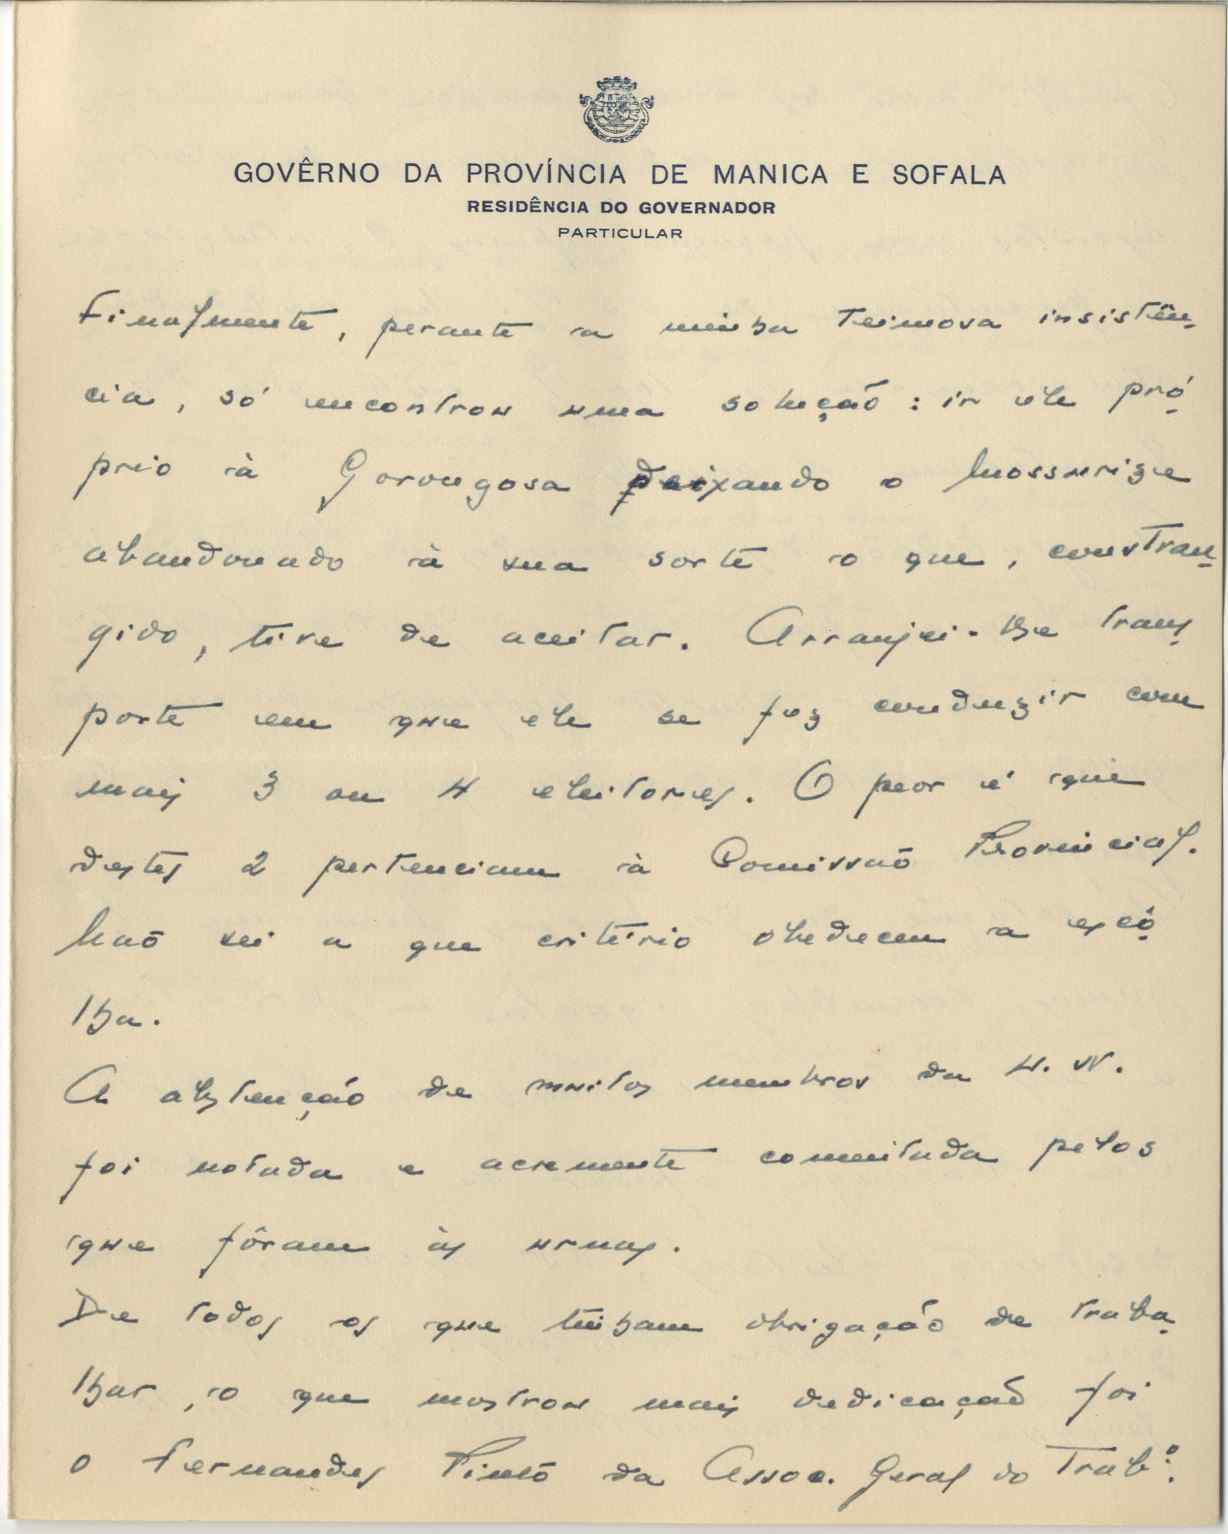 GOVÊRNO DA PROVÍNCIA DE MANICA E SOFALA
RESIDÊNCIA DO GOVERNADOR
PARTICULAR
Finalmente, perante a minha teimosa insistên-
cia, só encontrou uma solução: ir êle pró-
prio à Gorongosa deixando o Mossurize
abandonado à sua sorte o que, constran-
gido, tive de aceitar. Arranjei-lhe trans-
porte em que êle se fez conduzir com
mais 3 ou 4 eleitores. O peor é que
destes 2 pertenciam à Comissão Provincial.
Não sei a que critério obedeceu a escô-
lha.
A abstenção de muitos membros da U. N.
foi notada e acremente comentada pelos
que fôram às urnas.
De todos os que tinham obrigação de traba-
lhar, o que mostrou mais dedicação foi
o Fernandes Pinto da Assoc. Geral do Trabº.